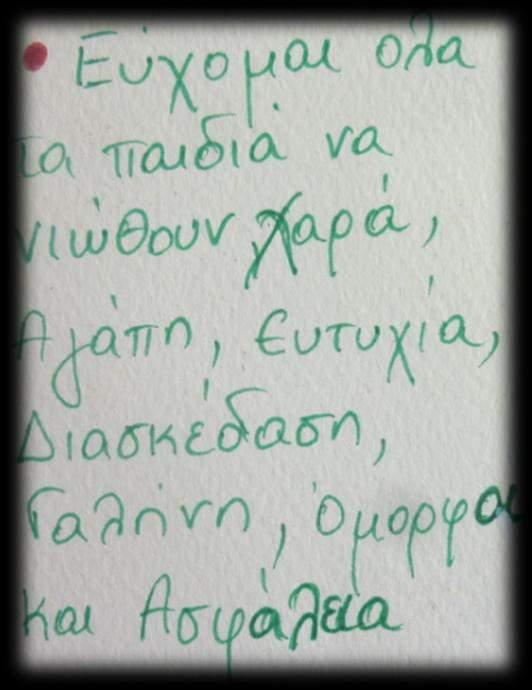 • Εύχομαι ολα
τα παιδιά να
νιώθουν χαρά,
Αγάπη, Ευτυχία,
Διασκέδαση,
Γαλήνη, Όμορφα
και Ασφάλεια